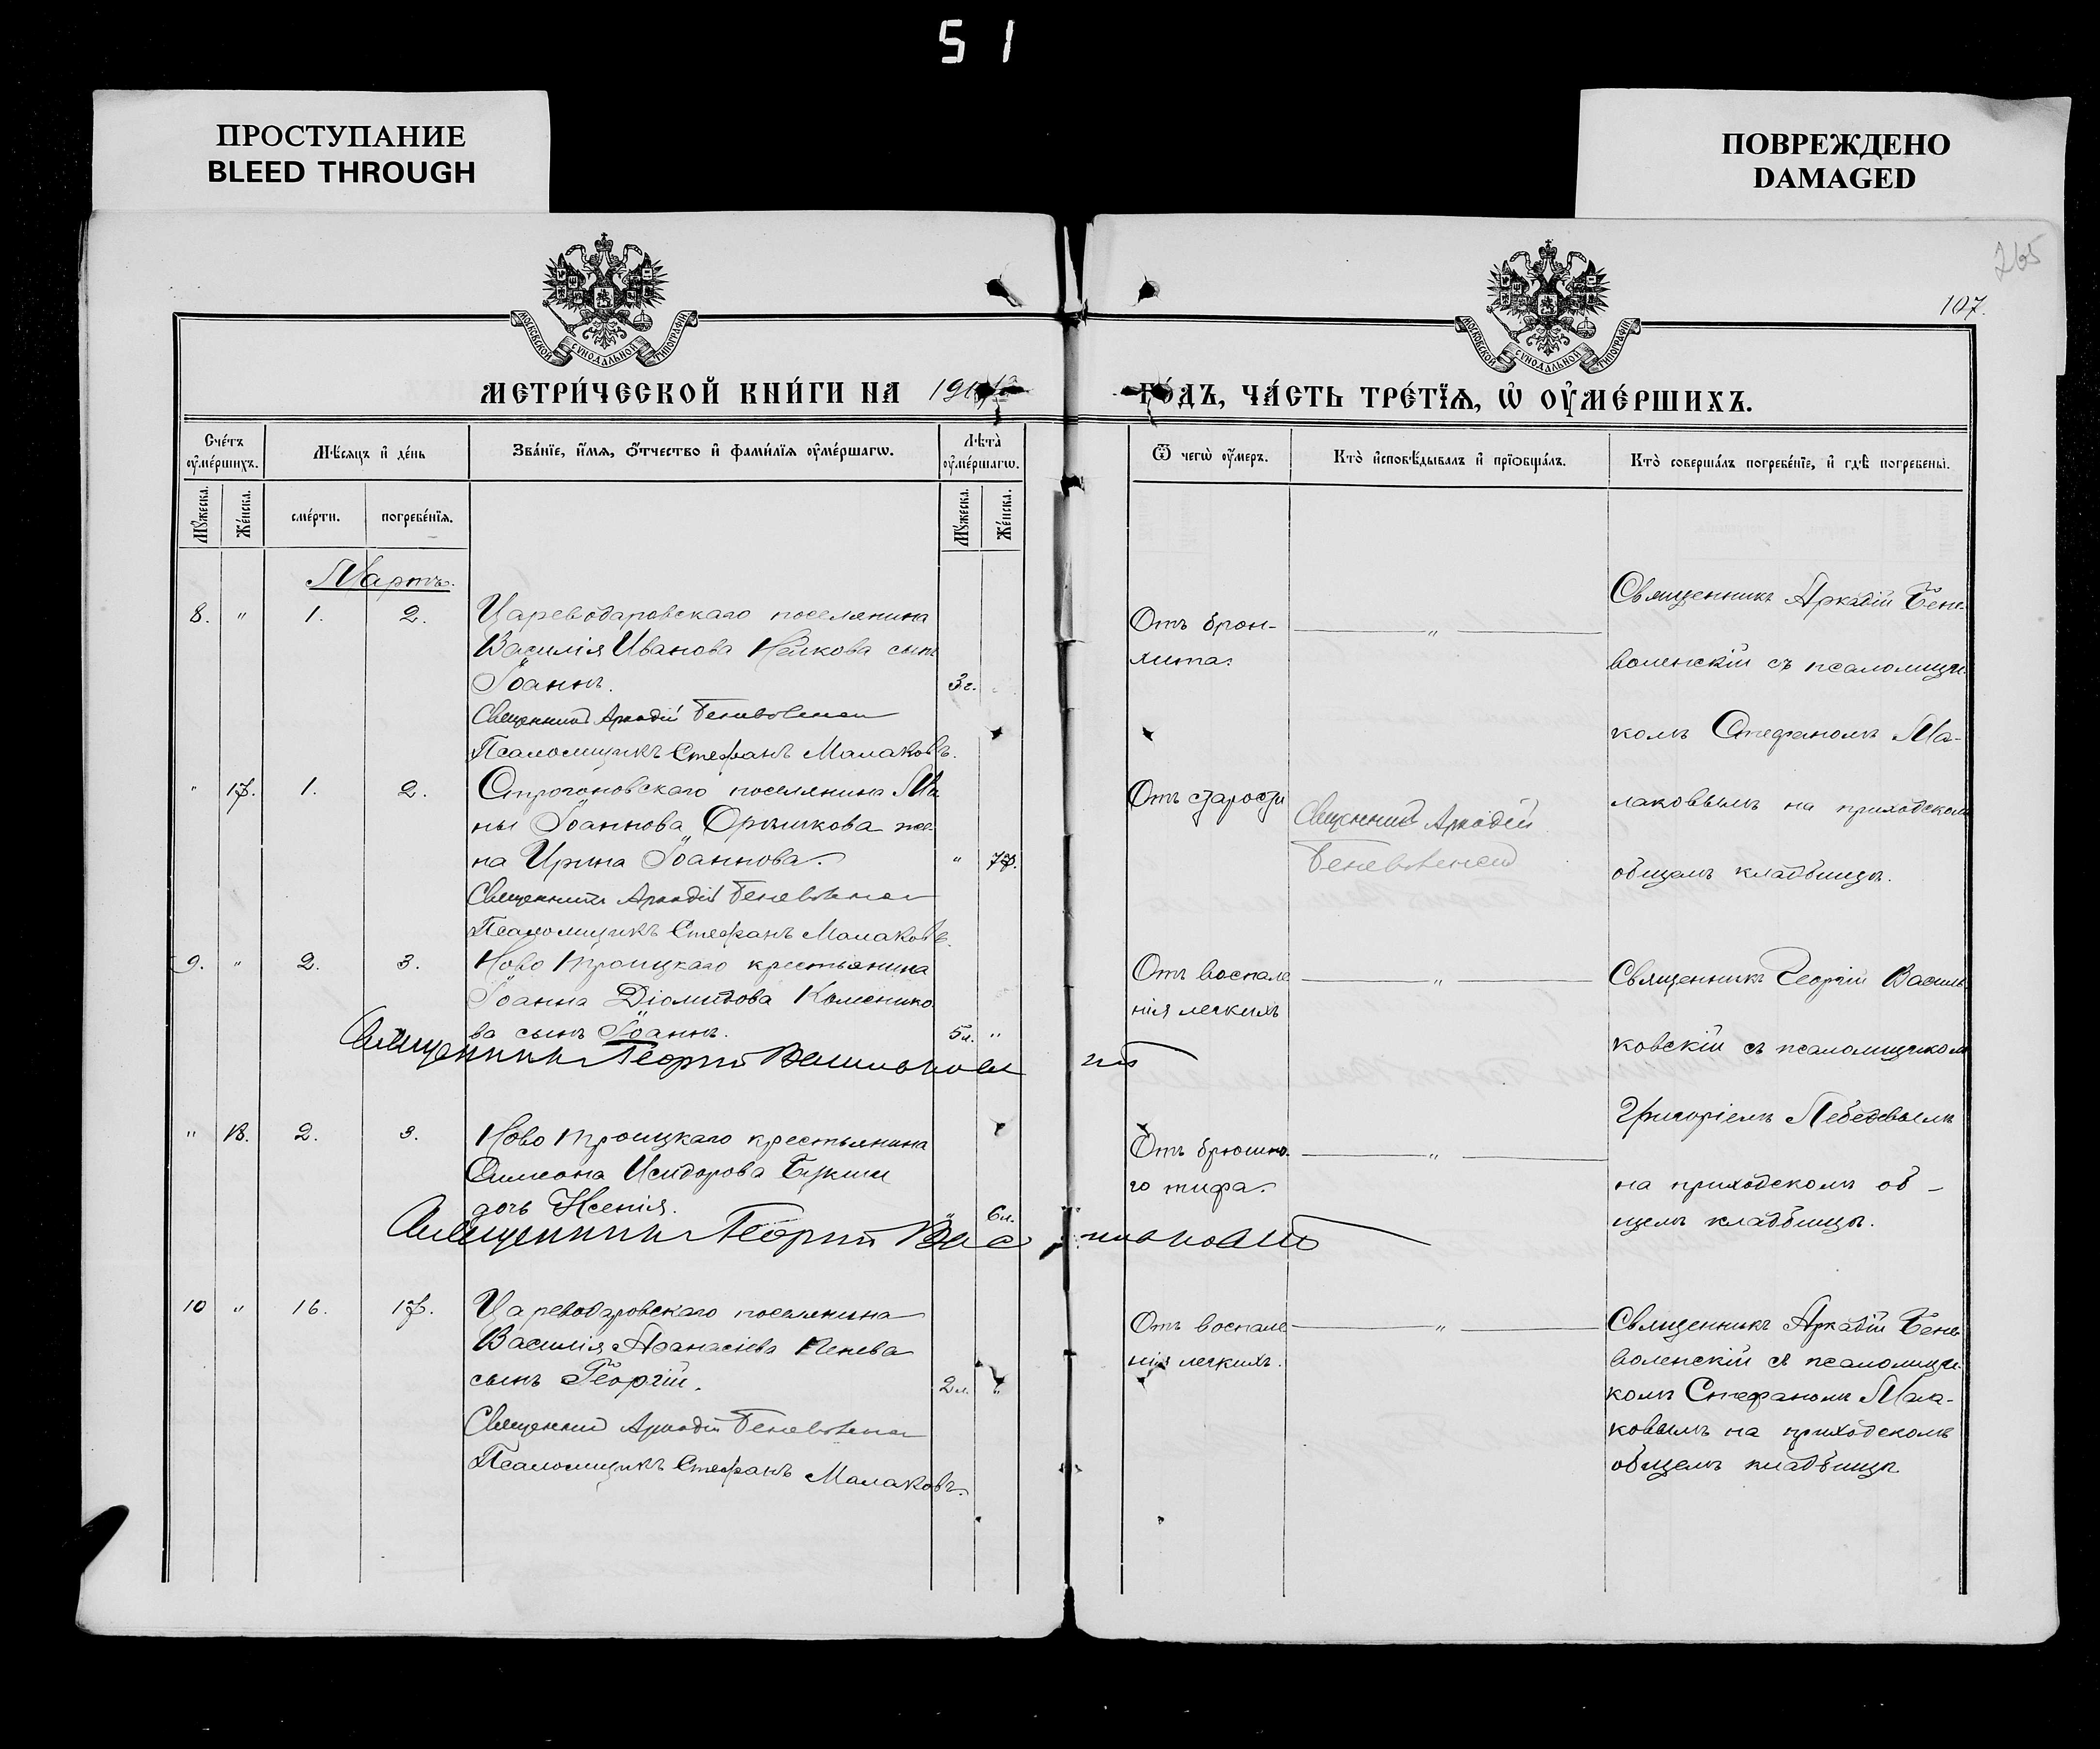 51
ПРОСТУПАНИЕ
BLEED THROUGH
ПОВРЕЖДЕНО
DAMAGED
265
107.
МОСКОВСКОЙ СѴНОДАЛЬНОЙ ТИПОГРАФІИ
МОСКОВСКОЙ СѴНОДАЛЬНОЙ ТИПОГРАФІИ
МЕТРИ́ЧЕСКОЙ КНИ́ГИ НА 191
ГО́ДЪ, ЧА́СТЬ ТРЕ́ТЇѦ, Ѡ҆ ОУ҆МЕ́РШИХЪ.
Сче́тъ оу҆ме́ршихъ.
Мѣ́сяцъ и҆ де́нь
Зва́нїе, и҆́мѧ, ѻ҆́тчество и҆ фами́лїѧ оу҆ме́ршагѡ.
Лѣта̀ оу҆ме́ршагѡ.
Ѿ чегѡ̀ оу҆́меръ.
Кто̀ и҆сповѣ́дывалъ и҆ прїѻбща́лъ.
Кто̀ соверша́лъ погребе́нїе, и҆ гдѣ̀ погребены̀.
Мꙋ́жеска.
Же́нска.
сме́рти.
погребе́нїѧ.
Мꙋ́жеска.
Же́нска.
Мартъ.
8. " 1. 2.
Цареводаровскаго поселянина
Василія Иванова Нейкова сынъ
Іоаннъ. 3г.
Священникъ Аркадій Беневоленскій
Псаломщикъ Стефанъ Малаковъ.
Отъ брон-
хита.
"
Священникъ Аркадій Бене-
воленскій съ псаломщи-
комъ Стефаномъ Ма-
лаковымъ на приходскомъ
общемъ кладбищѣ.
" 17. 1. 2.
Строгоновскаго поселянина
ны Іоаннова
на Ирина Іоаннова. " 77.
Священникъ Аркадій Беневоленскій
Псаломщикъ Стефанъ Малаковъ.
Отъ старости
Священникъ Аркадій
Беневоленскій
9. " 2. 3.
Ново Троицкаго крестьянина
Іоанна Діомидова
ва сынъ Іоаннъ. 5л. "
Священникъ Георгій Васильковскій
Отъ воспале
нія легкихъ
"
Священникъ Георгій Василь
ковскій съ псаломщикомъ
Григоріемъ Лебедевымъ
на приходскомъ об-
щемъ кладбищѣ.
" 18. 2. 3.
Ново Троицкаго крестьянина
Симеона Исидорова Букши
дочь Ксенія. " 6л.
Священникъ Георгій Васильковскій
Отъ брюшно-
го тифа.
"
10 " 16. 17.
Цареводаровскаго поселянина
Василія Аѳанасіева Пенева
сынъ Георгій. 2л. "
Священникъ Аркадій Беневоленскій
Псаломщикъ Стефанъ Малаковъ.
Отъ воспале
нія легкихъ.
"
Священникъ Аркадій Бене-
воленскій съ псаломщи-
комъ Стефаномъ Мала-
ковымъ на приходскомъ
общемъ кладбищѣ